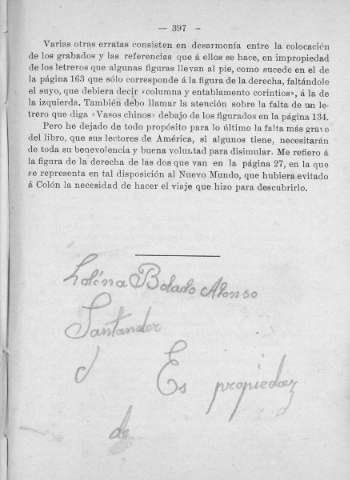 — 397 —
Varias otras erratas consisten en desarmonía entre la colocación
de los grabados y las referencias que á ellos se hace, en impropiedad
de los letreros que algunas figuras llevan al pie, como sucede en el de
la página 163 que sólo corresponde á la figura de la derecha, faltándole
el suyo, que debiera decir «columna y entablamento corintios», á la de
la izquierda. También debo llamar la atención sobre la falta de un le-
trero que diga «Vasos chinos» debajo de los figurados en la página 134.
Pero he dejado de todo propósito para lo último la falta más grave
del libro, que sus lectores de América, si algunos tiene, necesitarán
de toda su benevolencia y buena voluntad para disimular. Me refiero á
la figura de la derecha de las dos que van en la página 27, en la que
se representa en tal disposición al Nuevo Mundo, que hubiera evitado
á Colón la necesidad de hacer el viaje que hizo para descubrirlo.
Bolado Alonso
Santander
Es propiedaz
de